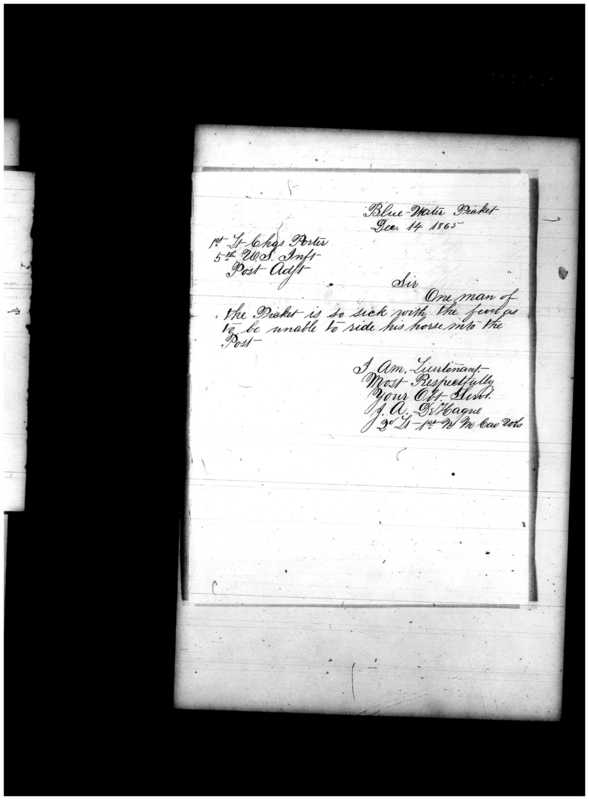 Blue Water Picket
Dec. 14 1865
1st Lt Chas Porter
5th U.S. Inft
Post Adjt
Sir
One man of
the Picket is so sick with the
to be unable to ride his horse into the
Post
I Am, Lieutenant
Most Respectfully
Your Obt Servt.
J. A. DeHague
2d Lt 1st N M Cav Vols